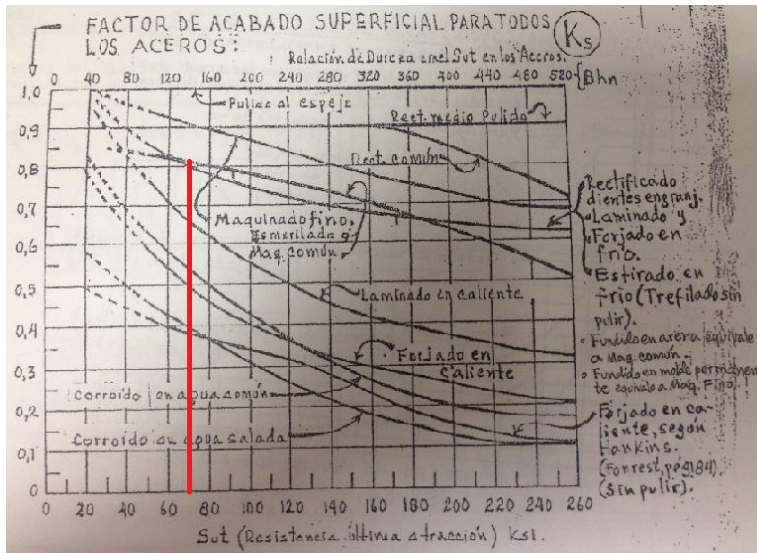 FACTOR DE ACABADO SUPERFICIAL PARA TODOS
LOS ACEROS:
Ks
Relación de Dureza con el Sut en los Aceros.
0 40 80 120 160 200 240 280 320 360 400 440 480 520 Bhn
1,0
0,9
0,8
0,7
0,6
0,5
0,4
0,3
0,2
0,1
0
Pulido al espejo
Rect. medio Pulido
Rect. común
Maquinado fino.
Esmerilado o
Maq. común
Laminado en Caliente
Forjado en
Caliente
Corroido en agua común
Corroido en agua salada
Rectificado
dientes engranj.
Laminado y
Forjado en
frio.
Estirado en
frio (Trefilado sin
pulir).
Fundido en arena equivale
a Maq. común.
Fundido en molde permanen
te equivale a Maq. Fino).
Forjado en ca-
liente, según
Hankins.
(Forrest, pág. 84).
(Sin pulir).
0 20 40 60 80 100 120 140 160 180 200 220 240 260
Sut (Resistencia última a tracción) Ksi.